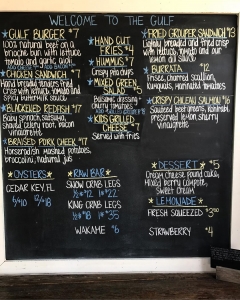 WELCOME TO THE GULF
GULF BURGER $7
100% natural beef on a
brioche bun with lettuce
tomato and garlic aioli
CHICKEN SANDWICH $7
Hand breaded tenders fried
with lettuce, tomato and
spicy buttermilk sauce
BLACKENED REDFISH $17
Baby spinach, satsuma,
shaved celery root, bacon
vinaigrette
BRAISED PORK CHEEK $17
Horseradish mashed potatoes,
broccolini, natural jus
OYSTERS
CEDAR KEY, FL
6/$10 12/$18
HAND CUT
FRIES $4
HUMMUS $7
Crispy pita chips
MIXED GREEN
SALAD
Balsamic dressing
cherry tomatoes
KIDS GRILLED
CHEESE $7
Served with fries
RAW BAR
SNOW CRAB LEGS
1/2# $12 1# $22
KING CRAB LEGS
1/2# $18 1# $35
WAKAME $6
FRIED GROUPER SANDWICH $13
Lightly breaded and fried crisp
with lettuce, tomato and our
lemon dill sauce
BURRATA $12
Frisee, charred scallion,
kumquats, marinated tomatoes
CRISPY CHILEAN SALMON $16
preserved lemon sherry
vinaigrette
DESSERT $5
Cream cheese pound cake,
mixed berry compote,
sweet cream
LEMONADE
FRESH SQUEEZED $3
STRAWBERRY $4